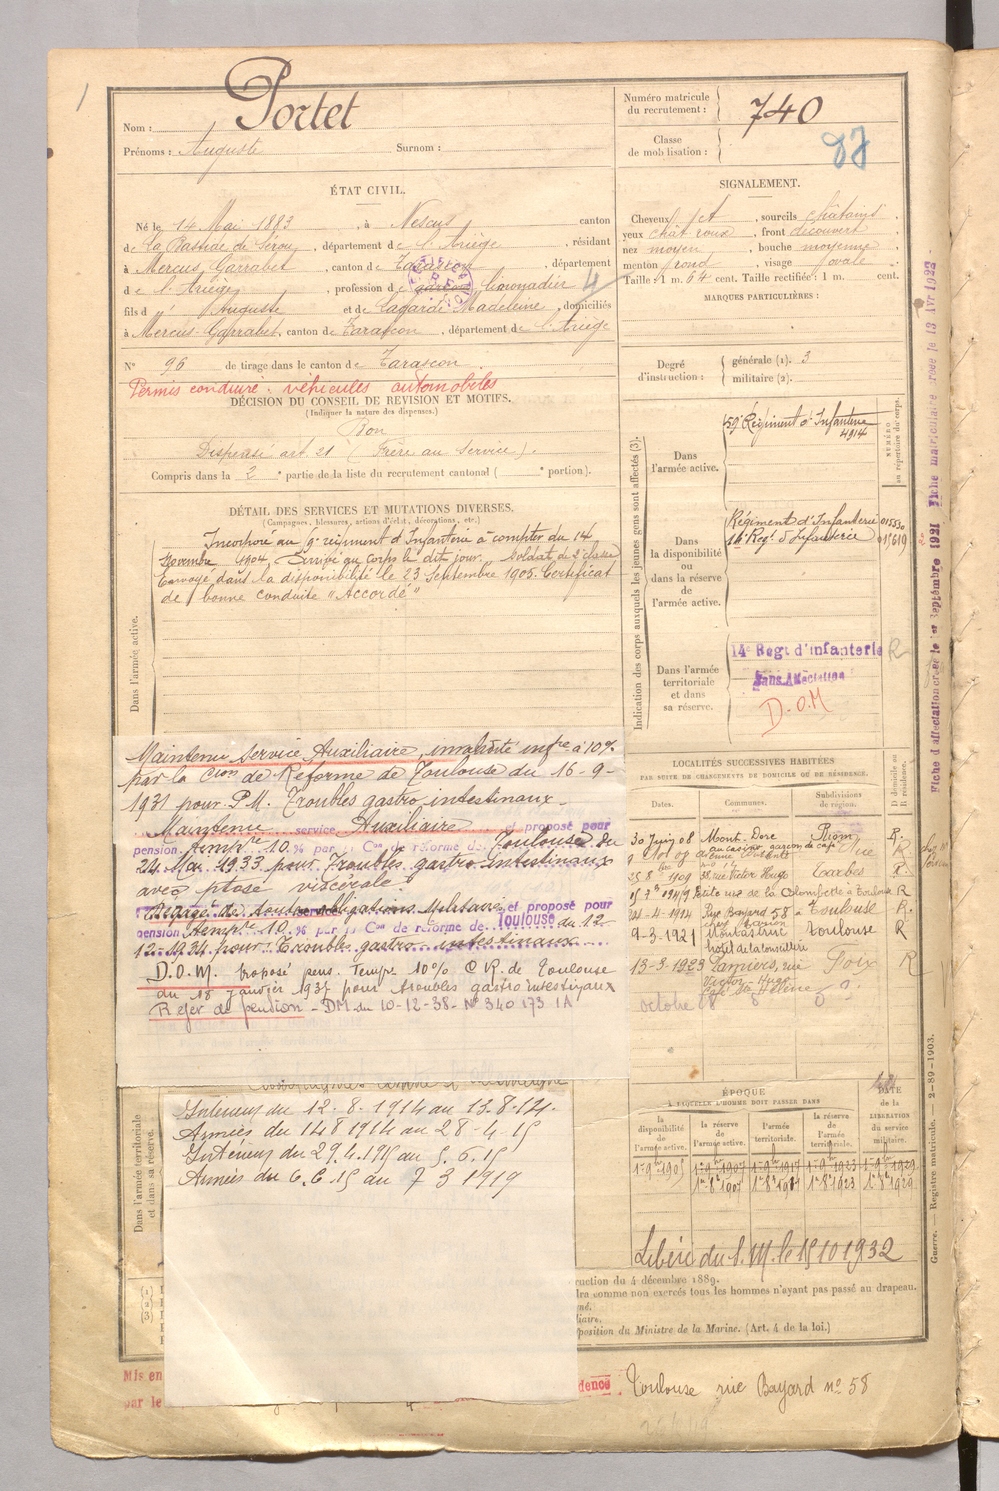 1
Nom : Portet
Prénoms : Auguste Surnom :
Numéro matricule du recrutement : 740
Classe de mobilisation :
87
ÉTAT CIVIL.
Né le 14 Mai 1883, à Nescus canton
de La Bastide de Sérou, département de l'Ariège, résidant
à Mercus Garrabet, canton de Tarascon, département
de l'Ariège, profession de garçon limonadier
fils d'Auguste et de Lagarde Madeleine, domiciliés
à Mercus-Garrabet, canton de Tarascon, département de l'Ariège
N° 96 de tirage dans le canton de Tarascon
Permis conduire : véhicules automobiles
DÉCISION DU CONSEIL DE REVISION ET MOTIFS.
(Indiquer la nature des dispenses.)
Bon
Dispensé art. 21 (Frère au Service).
Compris dans la 2e partie de la liste du recrutement cantonal ( e portion).
SIGNALEMENT.
Cheveux , sourcils châtains
yeux chât roux, front découvert
nez moyen, bouche moyenne
menton rond, visage ovale
Taille : 1 m. 64 cent. Taille rectifiée : 1 m. cent.
MARQUES PARTICULIÈRES :
Degré d'instruction :
générale (1). 3
militaire (2).
DÉTAIL DES SERVICES ET MUTATIONS DIVERSES.
(Campagnes, blessures, actions d'éclat, décorations, etc.)
Dans l'armée active.
Incorporé au 9e régiment d'Infanterie à compter du 14
Novembre 1904. Arrivé au corps le dit jour. Soldat de 2e classe
Envoyé dans la disponibilité le 23 Septembre 1905. Certificat
de bonne conduite "Accordé"
Indication des corps auxquels les jeunes gens sont affectés (3).
NUMÉRO au répertoire du corps.
Dans l'armée active.
59e Régiment d'Infanterie
4914
Dans la disponibilité ou dans la réserve de l'armée active.
Régiment d'Infanterie 015530
Regt d'Infanterie 017619
Dans l'armée territoriale et dans sa réserve.
14e Regt d'infanterie R
Sans Affectation
D.O.M
Fiche d'affectation créée le 1er Septembre 1921 Fiche matriculaire créée le 13 Avr 1922
Maintenu Service Auxiliaire, invalidité infre à 10%
par la Cion de Réforme de Toulouse du 16-9-
1931 pour P.M. Troubles gastro intestinaux
Maintenu service Auxiliaire et proposé pour
pension temp're 10 % par la Con de réforme de Toulouse du
24 Mai 1933 pour Troubles gastro intestinaux
avec ptose viscérale.
Dégagé de toutes obligations Militaires et proposé pour
pension temp're 10 % par la Con de réforme de Toulouse du 12-
12-1934 pour : Trouble gastro intestinaux
D.O.M. proposé pens. Tempre 10% C.R. de Toulouse
du 18 janvier 1937 pour troubles gastro intestinaux
Rejet de pension - DM du 10-12-38 - N° 340 173 1A
LOCALITÉS SUCCESSIVES HABITÉES
PAR SUITE DE CHANGEMENTS DE DOMICILE OU DE RÉSIDENCE.
Dates. Communes. Subdivisions de région. D domicile ou R résidence.
30 Juin 08 Mont-Dore Riom R.
au casino, garçon de café
38 rue Victor Hugo Tarbes R
Petite rue de la Colombette à Toulouse R
21-4-1914 Rue Bayard 58 à Toulouse R.
9-3-1921 Montastruc Toulouse R
13-3-1923 Pamiers, rue Foix R
Victor Hugo
octobre
Dans l'armée territoriale et dans sa réserve.
Intérieur du 12.8.1914 au 13.8.14.
Armées du 14 8 1914 au 28-4-15
Intérieur du 29.4.1915 au 5.6.15
Armées du 6.6.15 au 7 3 1919
ÉPOQUE
À LAQUELLE L'HOMME DOIT PASSER DANS
la disponibilité de l'armée active. la réserve de l'armée active. l'armée territoriale. la réserve de l'armée territoriale. DATE de la LIBÉRATION du service militaire.
1er 9bre 1905 1er 9bre 1907 1er 9bre 1917 1er 9bre 1923 1er 9bre 1929
1er 8bre 1907 1er 8bre 1917 1er 8bre 1923 1er 8bre 1929
Libéré du S.M. le 15 10 1932
Guerre. — Registre matricule. — 2-89-1903.
ruction du 4 décembre 1889.
dra comme non exercés tous les hommes n'ayant pas passé au drapeau.
position du Ministre de la Marine. (Art. 4 de la loi.)
Mis en
par le
dence Toulouse rue Bayard n° 58